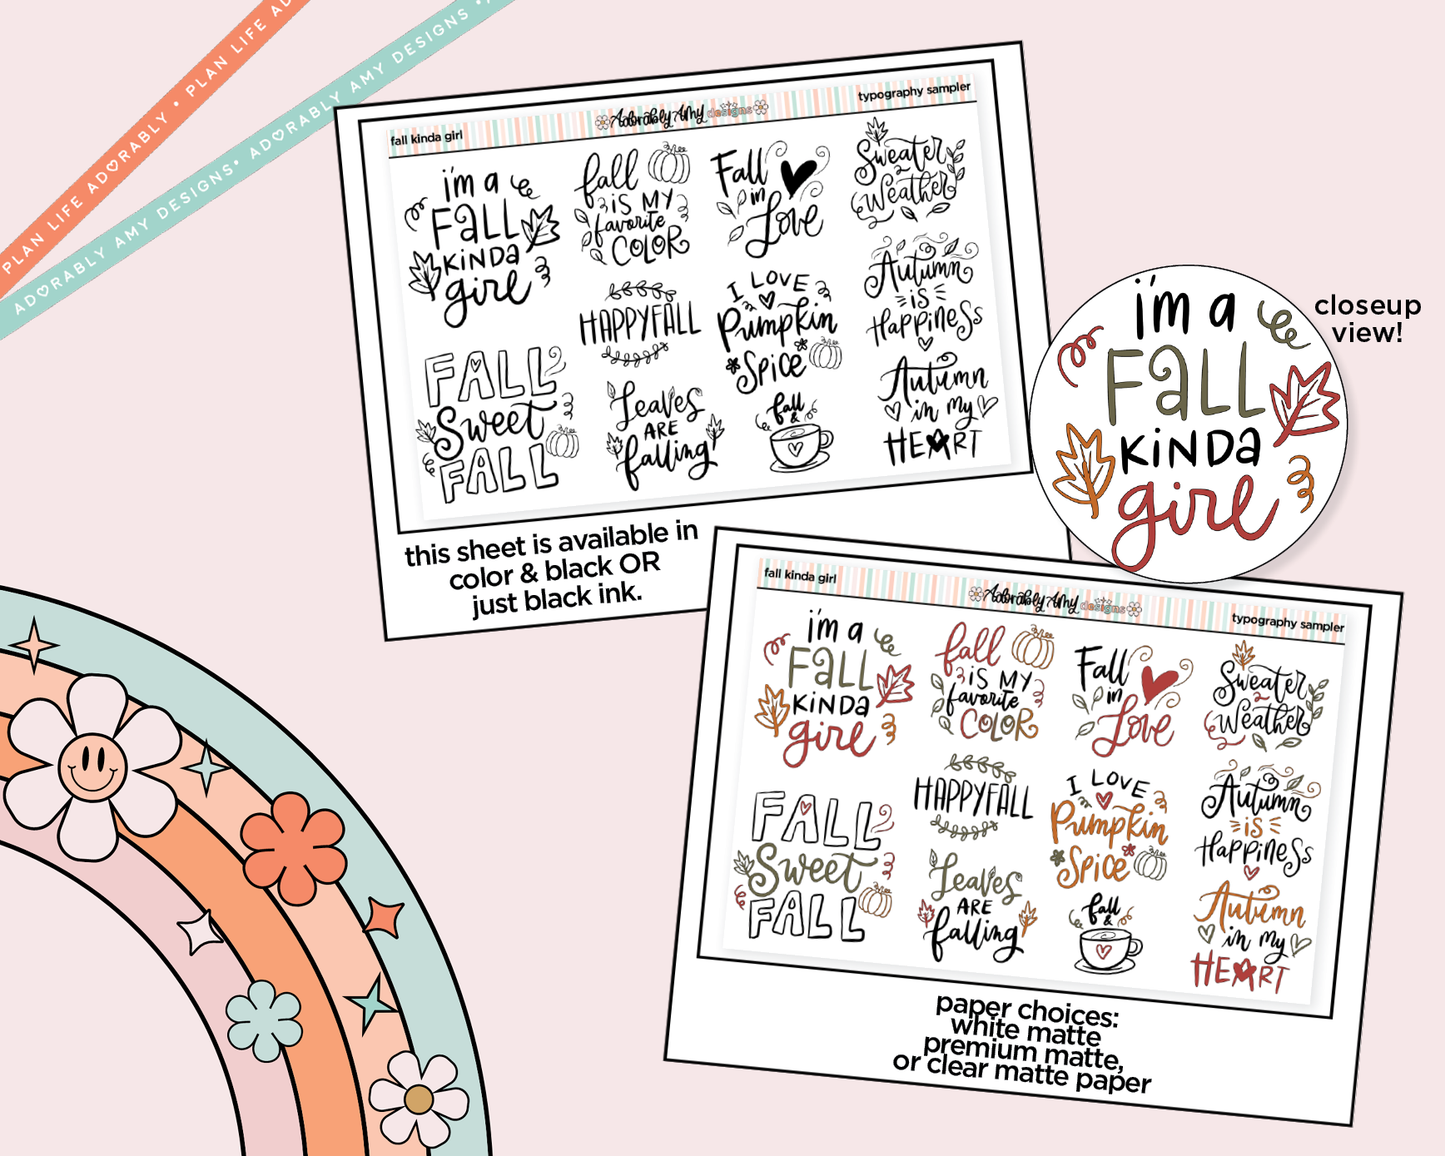 PLAN LIFE ADORABLY • PLAN LIFE AD
ADORABLY AMY DESIGNS• ADORABLY AMY DESIGNS •
fall kinda girl
Adorably Amy designs
typography sampler
i'm a
FALL
KINDA
girl
fall
IS MY
favorite
COLOR
Fall
in
Love
Sweater
Weather
HAPPY FALL
I LOVE
Pumpkin
Spice
Autumn
is
Happiness
FALL
Sweet
FALL
Leaves
ARE
falling
fall
&
Autumn
in my
HEART
this sheet is available in
color & black OR
just black ink.
i'm a
FALL
KINDA
girl
closeup
view!
fall kinda girl
Adorably Amy designs
typography sampler
i'm a
FALL
KINDA
girl
fall
IS MY
favorite
COLOR
Fall
in
Love
Sweater
Weather
HAPPY FALL
I LOVE
Pumpkin
Spice
Autumn
is
Happiness
FALL
Sweet
FALL
Leaves
ARE
falling
fall
&
Autumn
in my
HEART
paper choices:
white matte
premium matte,
or clear matte paper